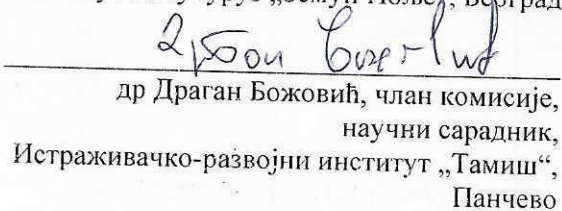 „Земун Поље“, Београд
др Драган Божовић, члан комисије,
научни сарадник,
Истраживачко-развојни институт „Тамиш“,
Панчево